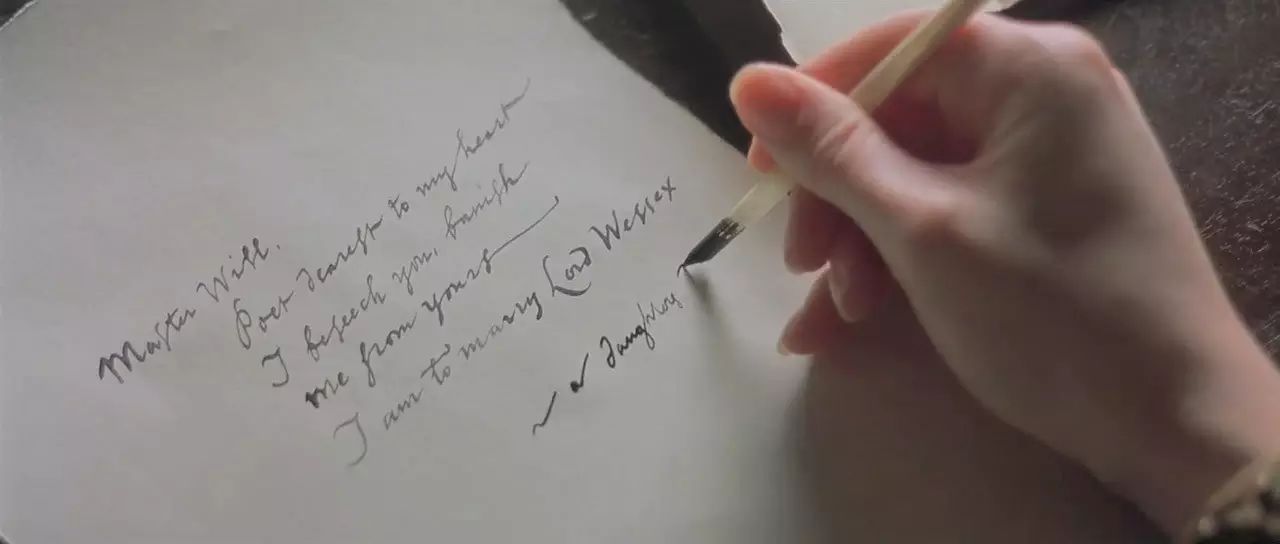 Master Will,
Poet dearest to my heart
I beseech you, banish
me from yours —
I am to marry Lord Wessex
~ a daughters